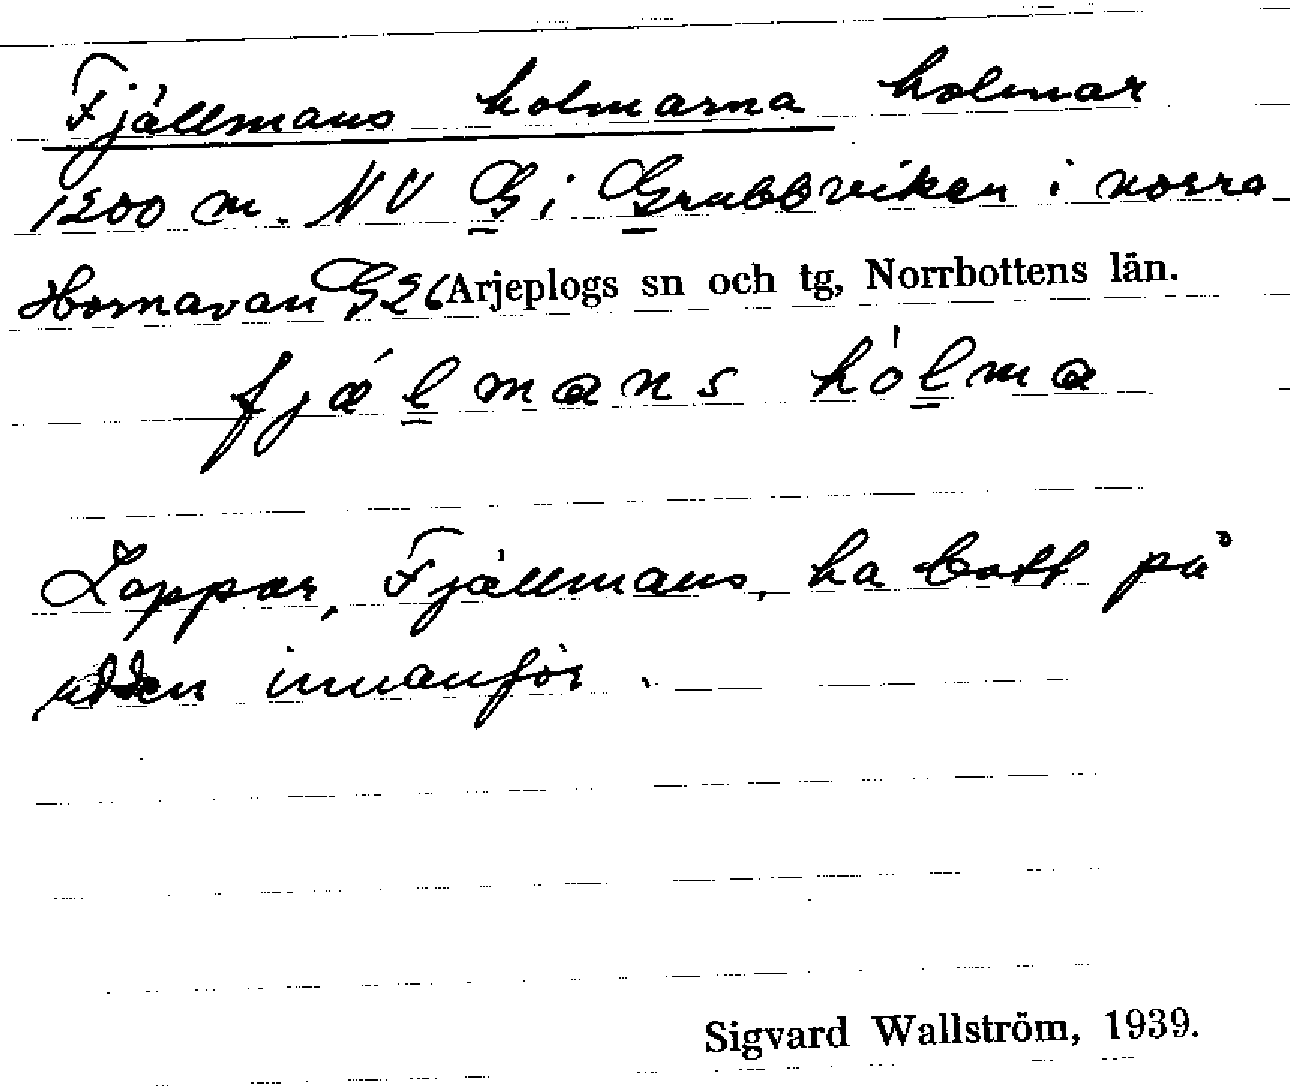 Fjällmans holmarna holmar
1200 m. NV G i Grubbviken i norra
Hornavan G26 Arjeplogs sn och tg, Norrbottens län.
fjælmans hólma
Lappar, Fjällmans, ha bott på
udden innanför.
Sigvard Wallström, 1939.